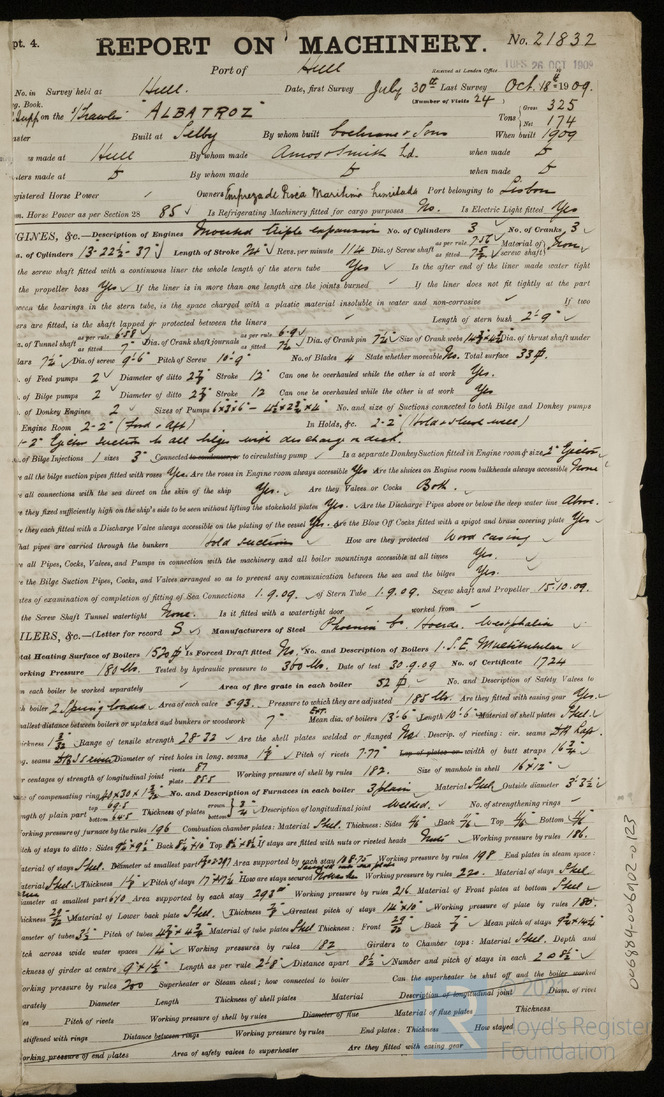 pt. 4.
REPORT ON MACHINERY. No. 21832
Port of Hull
Received at London Office TUES. 26 OCT 1909
No. in Survey held at Hull. Date, first Survey July 30th Last Survey Oct. 18th 1909.
g. Book. (Number of Visits 24)
on the S/Trawler "ALBATROZ" Tons { Gross 325 Net 174
Built at Selby By whom built Cochrane & Sons When built 1909
s made at Hull By whom made Amos & Smith Ld. when made
ers made at By whom made when made
gistered Horse Power Owners Empreza de Pesca Maritima Limitada Port belonging to Lisbon
m. Horse Power as per Section 28 85 Is Refrigerating Machinery fitted for cargo purposes No. Is Electric Light fitted Yes
GINES, &c.—Description of Engines Inverted triple expansion No. of Cylinders 3 No. of Cranks 3
. of Cylinders 13-22½-37 Length of Stroke 24 Revs. per minute 114 Dia. of Screw shaft as per rule 7.56 as fitted 7¾ Material of screw shaft Iron
the screw shaft fitted with a continuous liner the whole length of the stern tube Yes Is the after end of the liner made water tight
the propeller boss Yes If the liner is in more than one length are the joints burned If the liner does not fit tightly at the part
ween the bearings in the stern tube, is the space charged with a plastic material insoluble in water and non-corrosive If two
ers are fitted, is the shaft lapped or protected between the liners Length of stern bush 2'-9"
. of Tunnel shaft as per rule 6.58 as fitted 7" Dia. of Crank shaft journals as per rule 6.9 as fitted 7¼ Dia. of Crank pin 7¼ Size of Crank webs Dia. of thrust shaft under
lars 7¼ Dia. of screw 9'-6" Pitch of Screw 10'-9" No. of Blades 4 State whether moveable No. Total surface 33
. of Feed pumps 2 Diameter of ditto Stroke 12" Can one be overhauled while the other is at work Yes.
. of Bilge pumps 2 Diameter of ditto Stroke 12 Can one be overhauled while the other is at work Yes.
. of Donkey Engines 2 Sizes of Pumps 6×3×6 - 4½×2¾×4 No. and size of Suctions connected to both Bilge and Donkey pumps
Engine Room 2-2" (Ford & Aft) In Holds, &c. 2-2 (Hold & slush well)
1-2" Ejector suction to all bilges with discharge on deck.
. of Bilge Injections 1 sizes 3" Connected to circulating pump Is a separate Donkey Suction fitted in Engine room & size 2" Ejector
e all the bilge suction pipes fitted with roses Yes. Are the roses in Engine room always accessible Yes Are the sluices on Engine room bulkheads always accessible None
e all connections with the sea direct on the skin of the ship Yes. Are they Valves or Cocks Both.
e they fixed sufficiently high on the ship's side to be seen without lifting the stokehold plates Yes. Are the Discharge Pipes above or below the deep water line Above.
e they each fitted with a Discharge Valve always accessible on the plating of the vessel Yes. Are the Blow Off Cocks fitted with a spigot and brass covering plate Yes
hat pipes are carried through the bunkers Hold suction How are they protected Wood casing
e all Pipes, Cocks, Valves, and Pumps in connection with the machinery and all boiler mountings accessible at all times Yes.
e the Bilge Suction Pipes, Cocks, and Valves arranged so as to prevent any communication between the sea and the bilges Yes.
tes of examination of completion of fitting of Sea Connections 1.9.09. of Stern Tube 1.9.09. Screw shaft and Propeller 15.10.09.
the Screw Shaft Tunnel watertight None. Is it fitted with a watertight door worked from
ILERS, &c.—(Letter for record S) Manufacturers of Steel Phoenix Co. Hoerde. Westphalia
tal Heating Surface of Boilers 1520 Is Forced Draft fitted No. No. and Description of Boilers 1-S.E. Multitubular
orking Pressure 180 lbs. Tested by hydraulic pressure to 360 lbs. Date of test 30.9.09 No. of Certificate 1724
n each boiler be worked separately Area of fire grate in each boiler 52 No. and Description of Safety Valves to
h boiler 2 Spring loaded Area of each valve 5.93. Pressure to which they are adjusted 185 lbs. Are they fitted with easing gear Yes.
mallest distance between boilers or uptakes and bunkers or woodwork 7" Mean dia. of boilers 13'-6 Length 10'-6" Material of shell plates Steel.
ickness Range of tensile strength 28-32 Are the shell plates welded or flanged No. Descrip. of riveting: cir. seams DR Lap.
g. seams Diameter of rivet holes in long. seams Pitch of rivets 7.77 Lap of plates or width of butt straps 16¾
r centages of strength of longitudinal joint rivets 87 plate 85.5 Working pressure of shell by rules 182. Size of manhole in shell 16×12"
e of compensating ring No. and Description of Furnaces in each boiler 3 plain Material Steel Outside diameter 3'-3½"
ngth of plain part top 69.5 bottom 64.5 Thickness of plates crown bottom ¾ Description of longitudinal joint welded. No. of strengthening rings
orking pressure of furnace by the rules 196 Combustion chamber plates: Material Steel. Thickness: Sides Back Top Bottom
tch of stays to ditto: Sides Back Top If stays are fitted with nuts or riveted heads Nuts Working pressure by rules 186.
aterial of stays Steel. Diameter at smallest part Area supported by each stay Working pressure by rules 198 End plates in steam space:
aterial Steel. Thickness Pitch of stays How are stays secured Working pressure by rules 220. Material of stays Steel
ameter at smallest part Area supported by each stay 293 Working pressure by rules 216 Material of Front plates at bottom Steel
ickness Material of Lower back plate Steel. Thickness Greatest pitch of stays 14×10 Working pressure of plate by rules 180.
ameter of tubes 3½ Pitch of tubes Material of tube plates Steel Thickness: Front Back Mean pitch of stays
tch across wide water spaces 14" Working pressures by rules 182 Girders to Chamber tops: Material Steel. Depth and
ickness of girder at centre 9"×1½" Length as per rule 2'-8" Distance apart 8½ Number and pitch of stays in each 2 @ 8½
orking pressure by rules 200 Superheater or Steam chest; how connected to boiler Can the superheater be shut off and the boiler worked
arately Diameter Length Thickness of shell plates Material Description of longitudinal joint Diam. of rivet
les Pitch of rivets Working pressure of shell by rules Diameter of flue Material of flue plates Thickness
stiffened with rings Distance between rings Working pressure by rules End plates: Thickness How stayed
orking pressure of end plates Area of safety valves to superheater Are they fitted with easing gear
006884-006902-0123
© 2021
LR
Lloyd's Register
Foundation